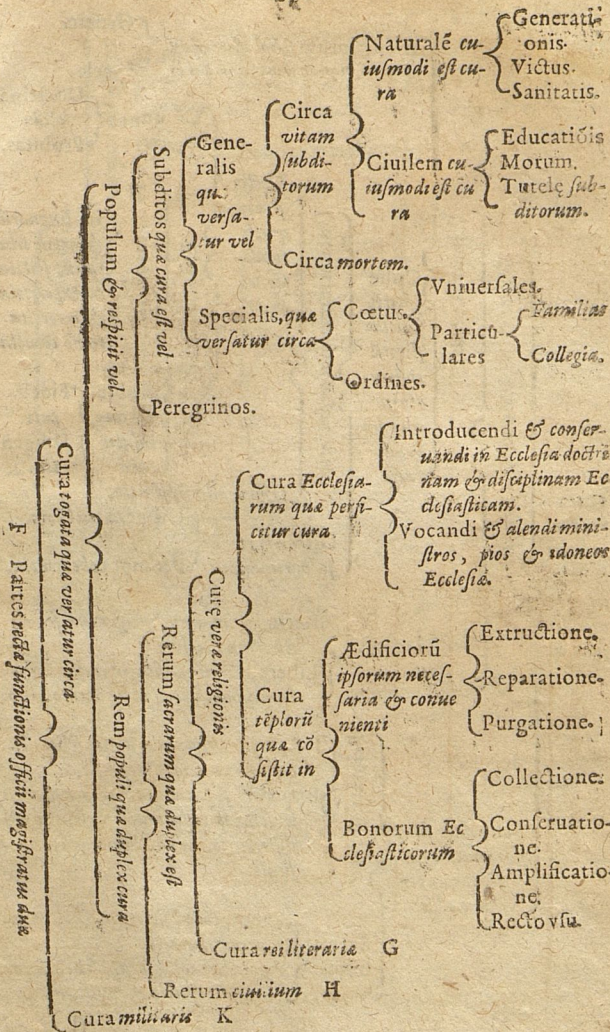 F Partes rectæ functionis officii magistratus duæ
Cura togata quæ versatur circa
Populum & respicit vel
Subditos quæ cura est vel
Gene-
ralis
quæ
versa-
tur vel
Circa
vitam
subdi-
torum
Naturalē cu-
iusmodi est cu-
ra
Generati-
onis.
Victus.
Sanitatis.
Ciuilem cu-
iusmodi est cu
ra
Educatiōis
Morum.
Tutelę sub-
ditorum.
Circa mortem.
Specialis, quæ
versatur circa
Cœtus.
Vniuersales.
Particu-
lares
Familiæ
Collegia.
Ordines.
Peregrinos.
Rem populi quæ duplex cura
Rerum sacrarum quæ duplex est
Curę veræ religionis
Cura Ecclesia-
rum quæ perfi-
citur cura
Introducendi & conser-
uandi in Ecclesia doctri
nam & disciplinam Ec
clesiasticam.
Vocandi & alendi mini-
stros, pios & idoneos
Ecclesiæ.
Cura
tēplorū
quæ cō
sistit in
Ædificiorū
ipsorum neces-
saria & conue
nienti
Extructione.
Reparatione.
Purgatione.
Bonorum Ec
clesiasticorum
Collectione.
Conseruatio-
ne.
Amplificatio-
ne.
Recto vsu.
Cura rei literariæ G
Rerum ciuilium H
Cura militaris K